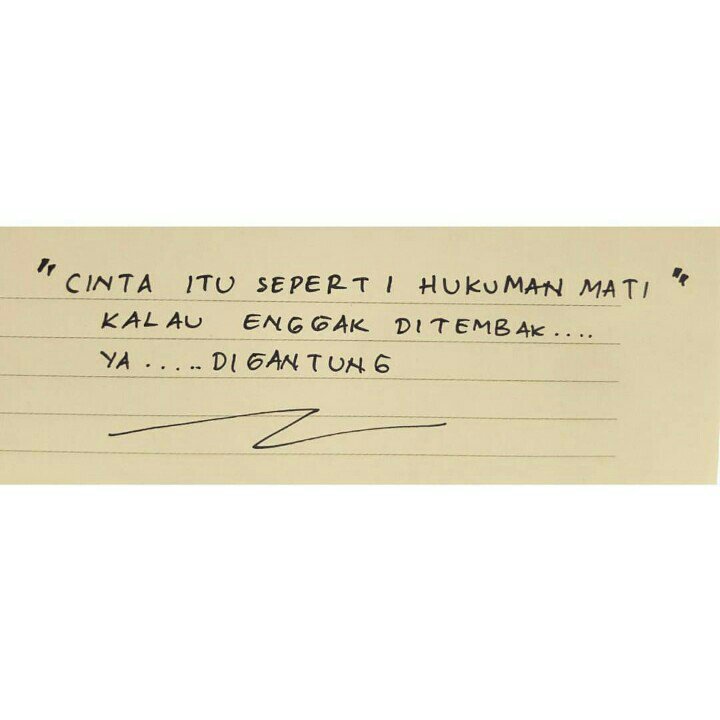 "CINTA ITU SEPERTI HUKUMAN MATI"
KALAU ENGGAK DITEMBAK....
YA.....DIGANTUNG